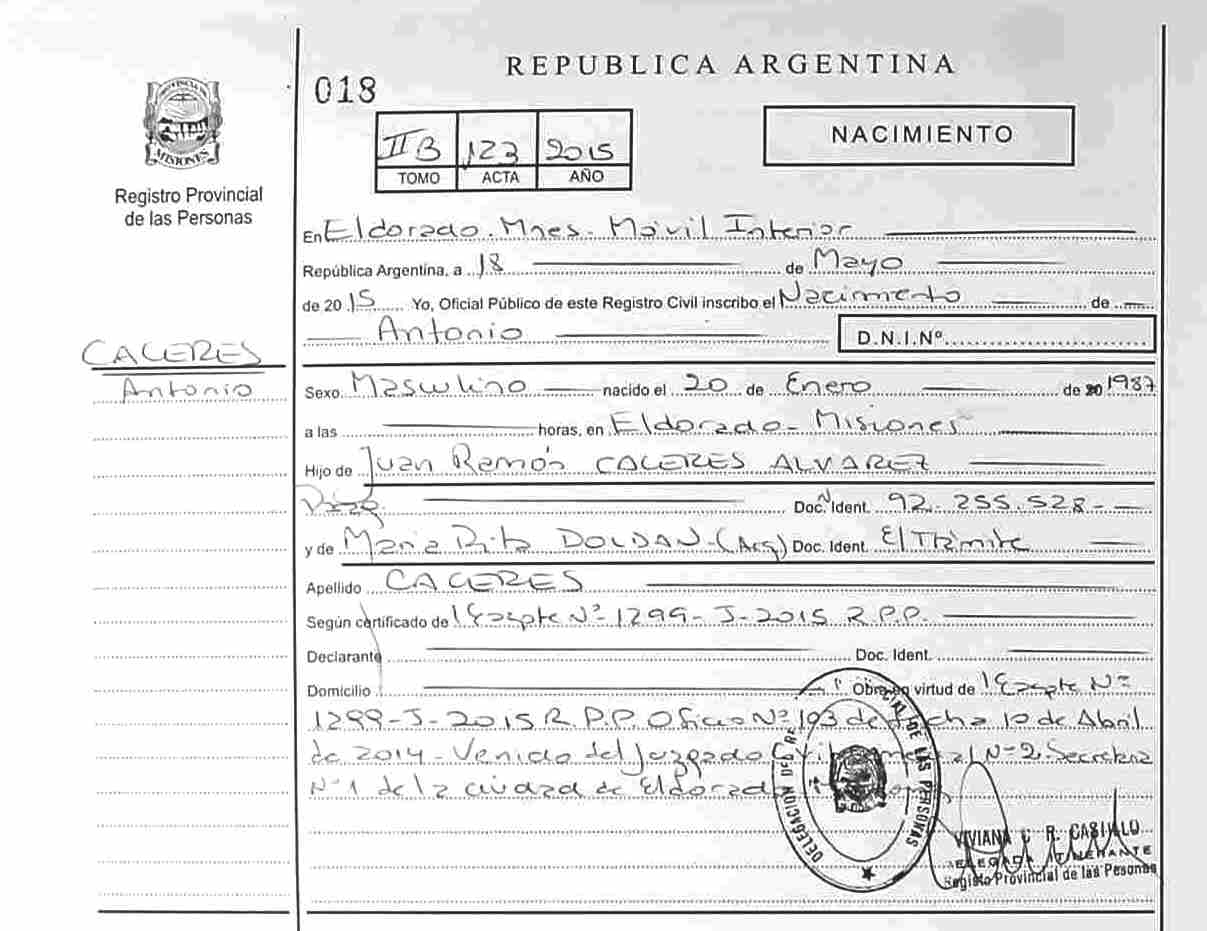 REPUBLICA ARGENTINA
018
NACIMIENTO
II B 123 2015
TOMO ACTA AÑO
PROVINCIA DE
MISIONES
Registro Provincial
de las Personas
En Eldorado. Mnes. Móvil Interior
República Argentina, a 18 de Mayo
de 2015 Yo, Oficial Público de este Registro Civil inscribo el Nacimiento de
Antonio D.N.I.Nº
CACERES
Antonio
Sexo Masculino nacido el 20 de Enero de 20 1987
a las horas, en Eldorado - Misiones
Hijo de Juan Ramón CACERES ALVAREZ
Doc. Ident. 92.255.528.-
y de Maria Rita DOLDAN - (Arg) Doc. Ident. E/Trámite
Apellido CACERES
Según certificado de Expte Nº 1299 - J - 2015 R.P.P.
Declarante Doc. Ident.
Domicilio Obra en virtud de Expte Nº
1299 - J - 2015 R.P.P. Oficio Nº 193 de fecha 10 de Abril
de 2014 - Venido del Juzgado Civil Nº 2 - Secretaria
Nº 1 de la ciudad de Eldorado
DELEGACION DEL DE LAS PERSONAS
VIVIANA R. CASTILLO
DELEGADA ITINERANTE
Registro Provincial de las Pesonas